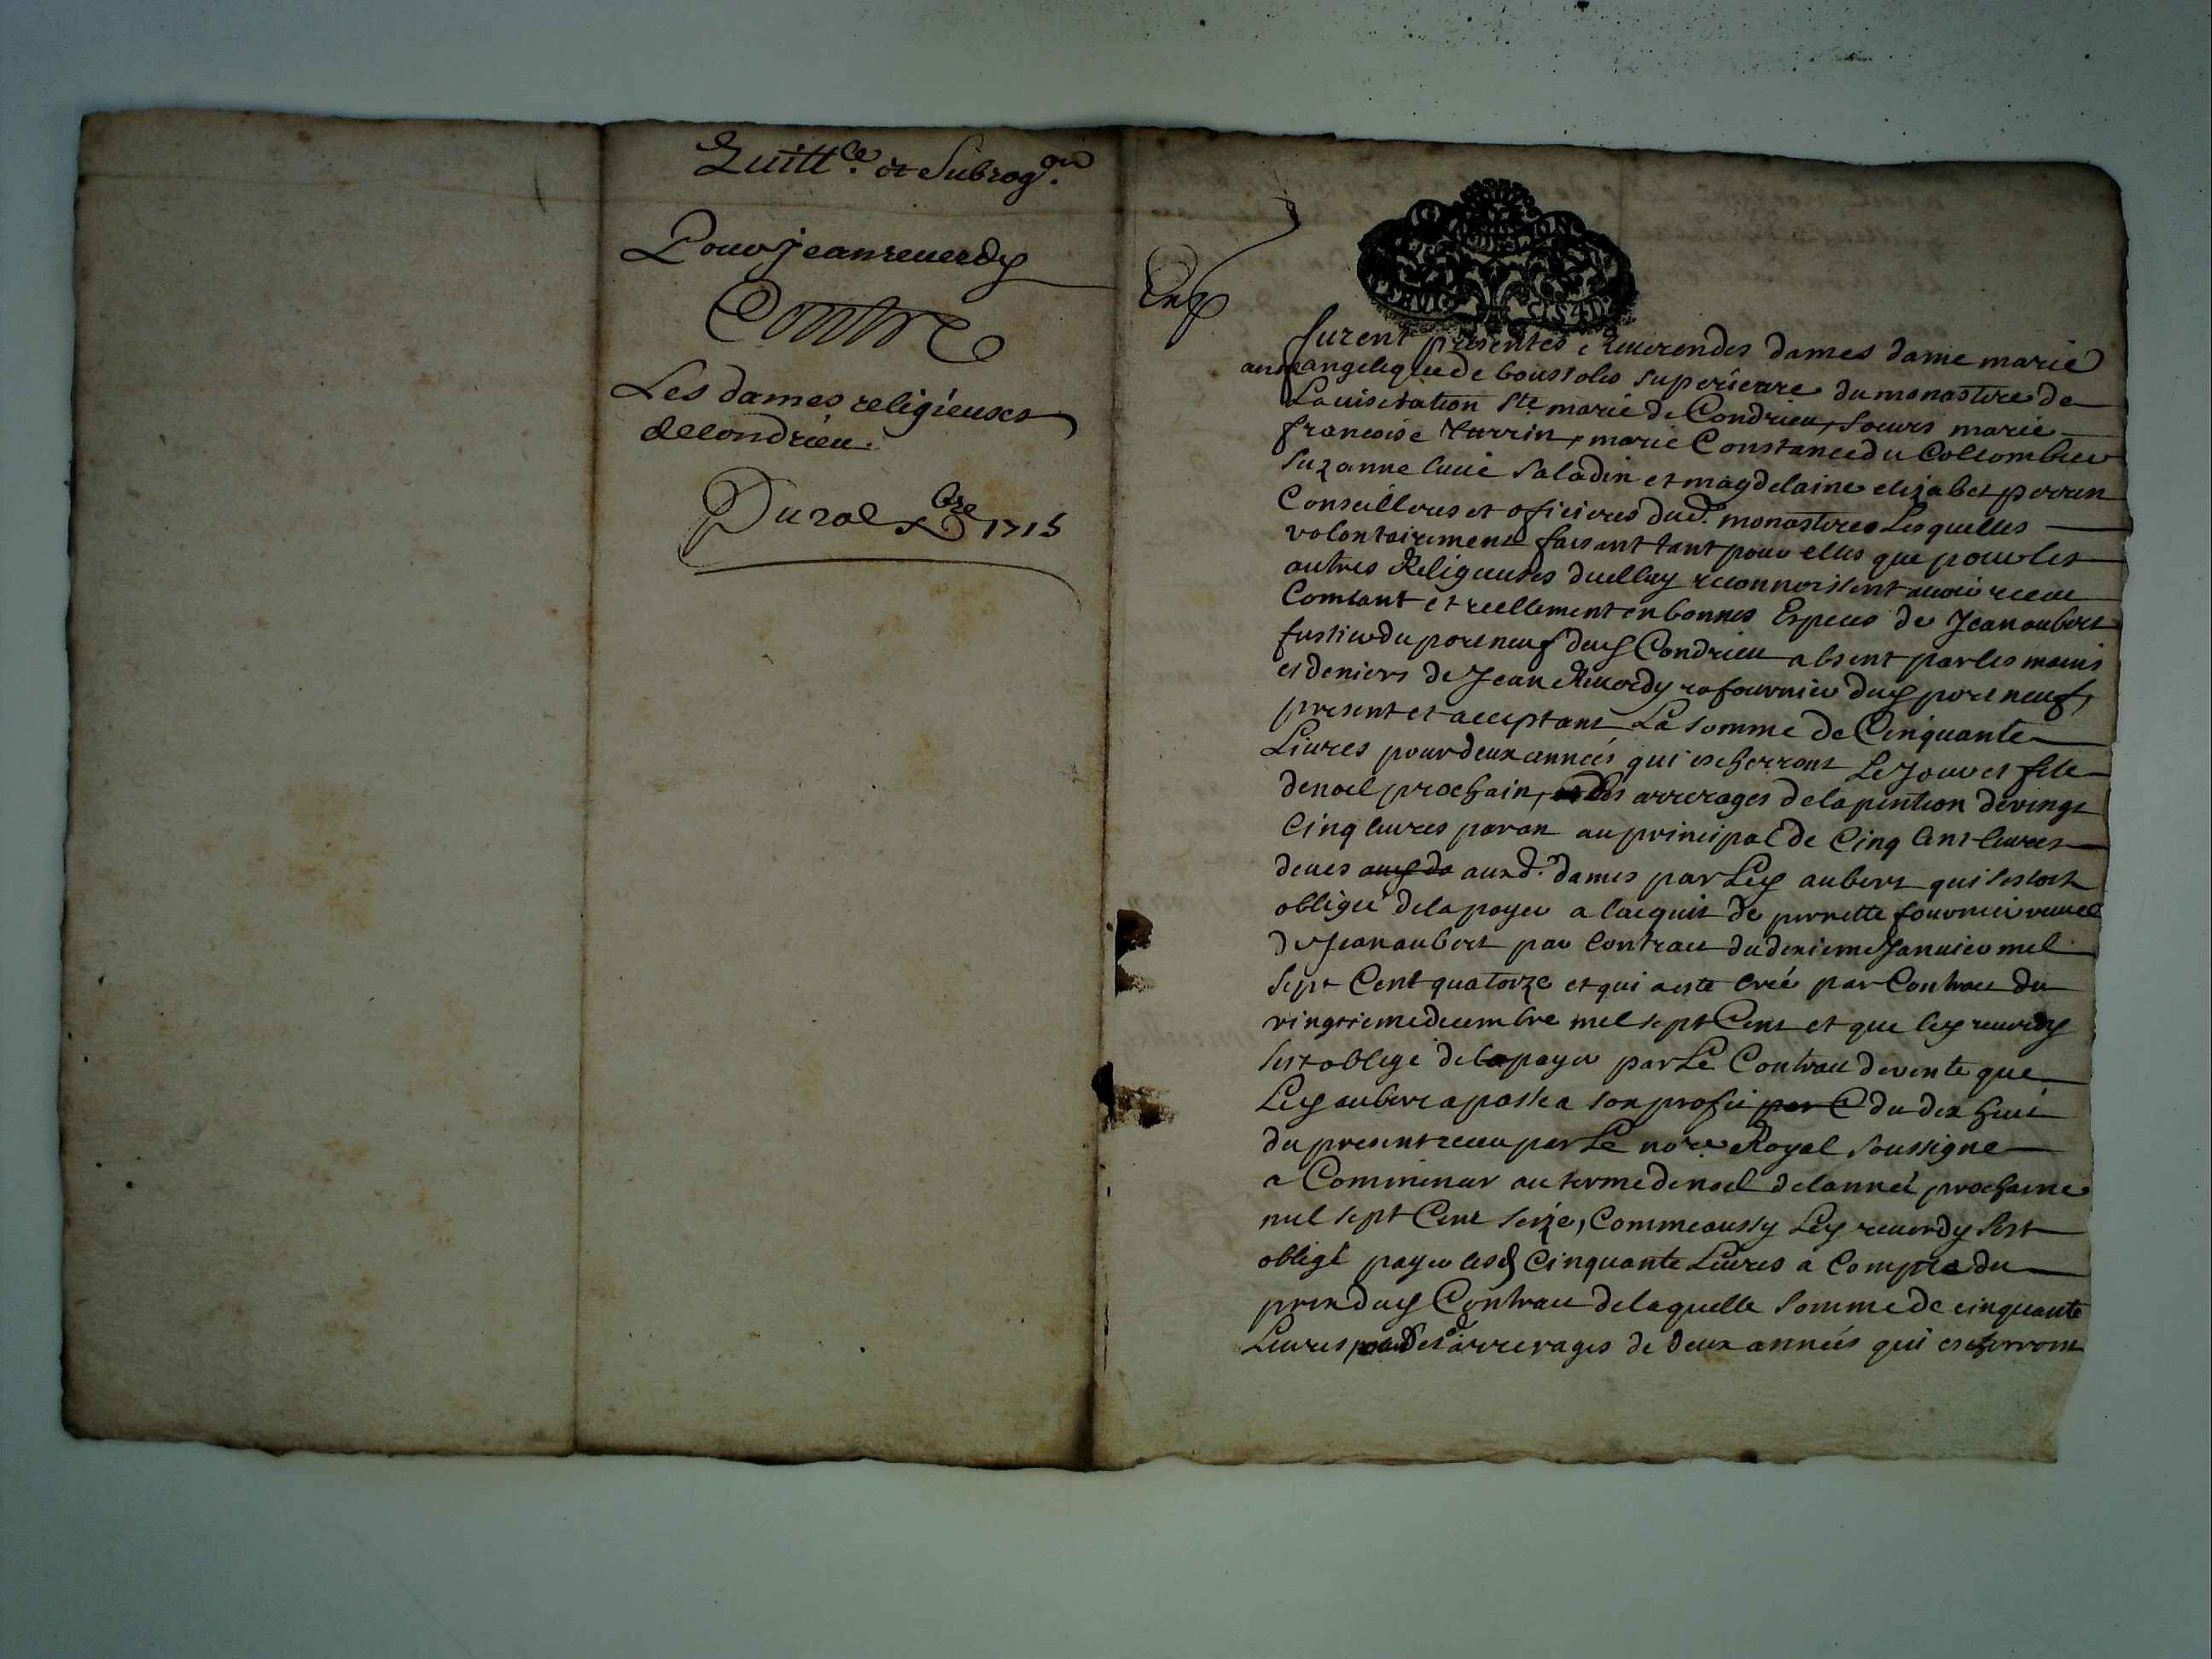 Quitt.ce et Subrog.on
Pour jean reuerdy
Contre
Les dames religieuses
de Condrieu.
Du xbre 1715
Exp
furent presentes Reuerendes dames dame marie
anne angelique de boussoles superieure du monastere de
La uisitation Ste marie de Condrieu, soeurs marie
francoise turrin, marie Constance du Collombier
suzanne lucie saladin et magdelaine elizabet perrin
Conseilleres et oficieres dud. monastere Lesquelles
volontairement faisant tant pour elles que pour les
autres Religieuses dicelluy reconnoissent auoir receu
Comtant et reellement en bonnes Especes de Jean aubert
fustier du port neuf dud Condrieu absent par les mains
et deniers de Jean Reuerdy rafournier dud port neuf,
present et acceptant La somme de Cinquante
Liures pour deux années qui escherront Le Jour et feste
de noel prochain, des arrerages de la pention de vingt
Cinq liures par an au principal de Cinq Cent liures
deues aux d. dames par Led aubert qui sestoit
obligé de la payer a lacquit de perrette fournier veuve
de Jean aubert par Contract du dexieme Januier mil
sept Cent quatorze et qui a esté creé par Contract du
vingtieme decembre mil sept Cent et que led reuerdy
sest oblige de la payer par Le Contract de vente que
Led aubert a passé a son profit par C du dix huit
du present receu par Le nore Royal soussigne
a Commencer au terme de noel de lanneé prochaine
mil sept Cent seize, Comme aussy Led reuerdy sest
obligé payer lesd Cinquante Liures a Compte du
prix dud Contract de laquelle somme de cinquante
Liures pour les arrerages de deux années qui escherront